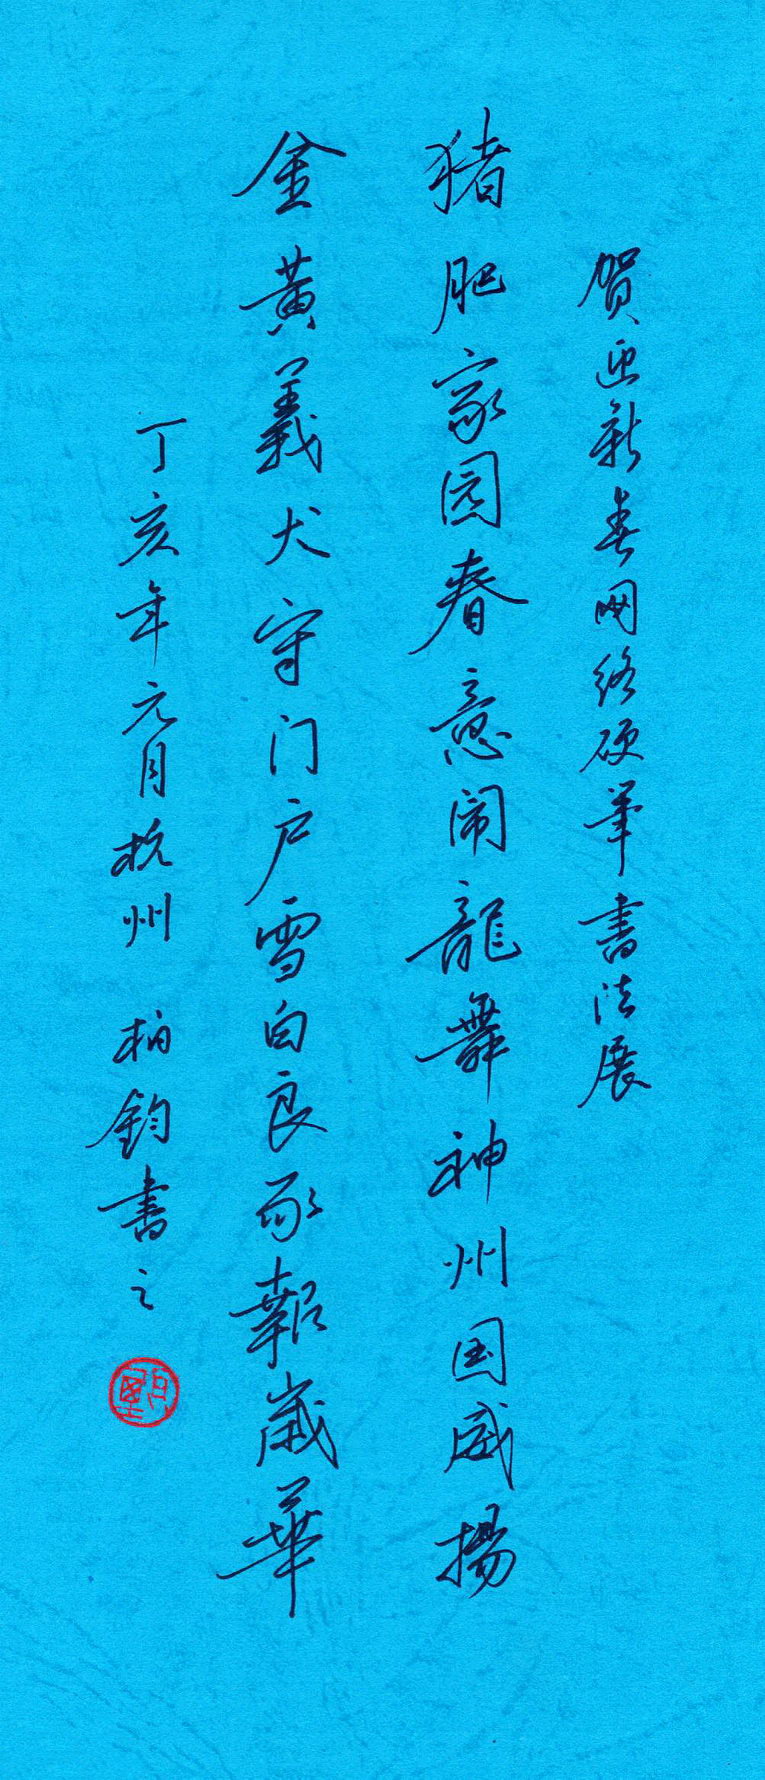 贺迎新春网络硬筆書法展
猪肥家园春意闹龍舞神州国威揚
金黄義犬守门户雪白良豕報歲華
丁亥年元月杭州 柏钧書之